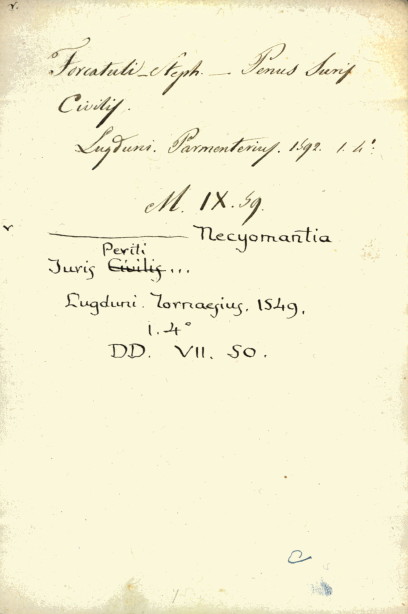 v.
Forcatuli Steph. — Penus Juris
Civilis.
Lugduni. Parmenterius. 1592. 1. 4°.
M. IX. 59.
v ——— Necyomantia
Periti
Juris Civilis...
Lugduni. Tornaesius. 1549.
1. 4°
DD. VII. 50.
C